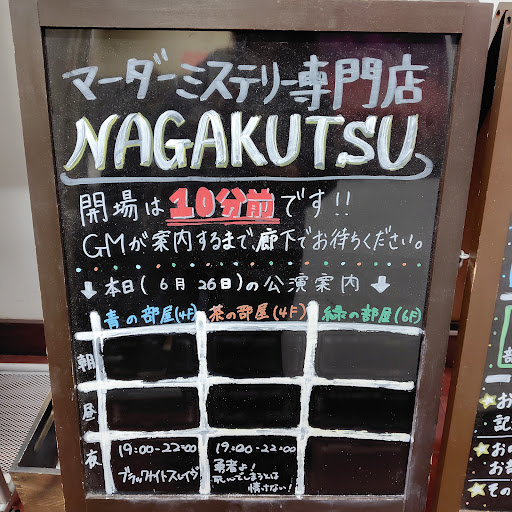 マーダーミステリー専門店
NAGAKUTSU
開場は10分前です!!
GMが案内するまで、廊下でお待ちください。
↓本日(6月26日)の公演案内↓
青の部屋(4F) 茶の部屋(4F) 緑の部屋(6F)
朝
昼
夜
19:00-22:00
ブラックナイトスレイヴ
19:00-22:00
勇者よ!
死んでしまうとは
情けない!
★お
記
★お
お部
★その